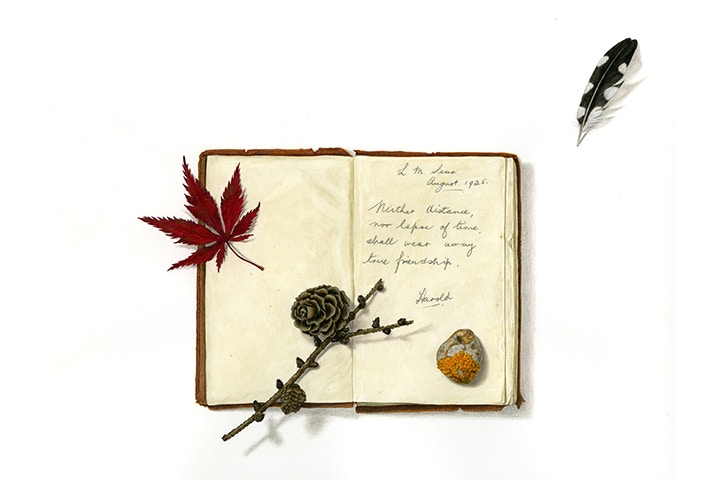 L M
August 1925.
Neither distance,
nor lapse of time,
shall wear away
true friendship.
Harold